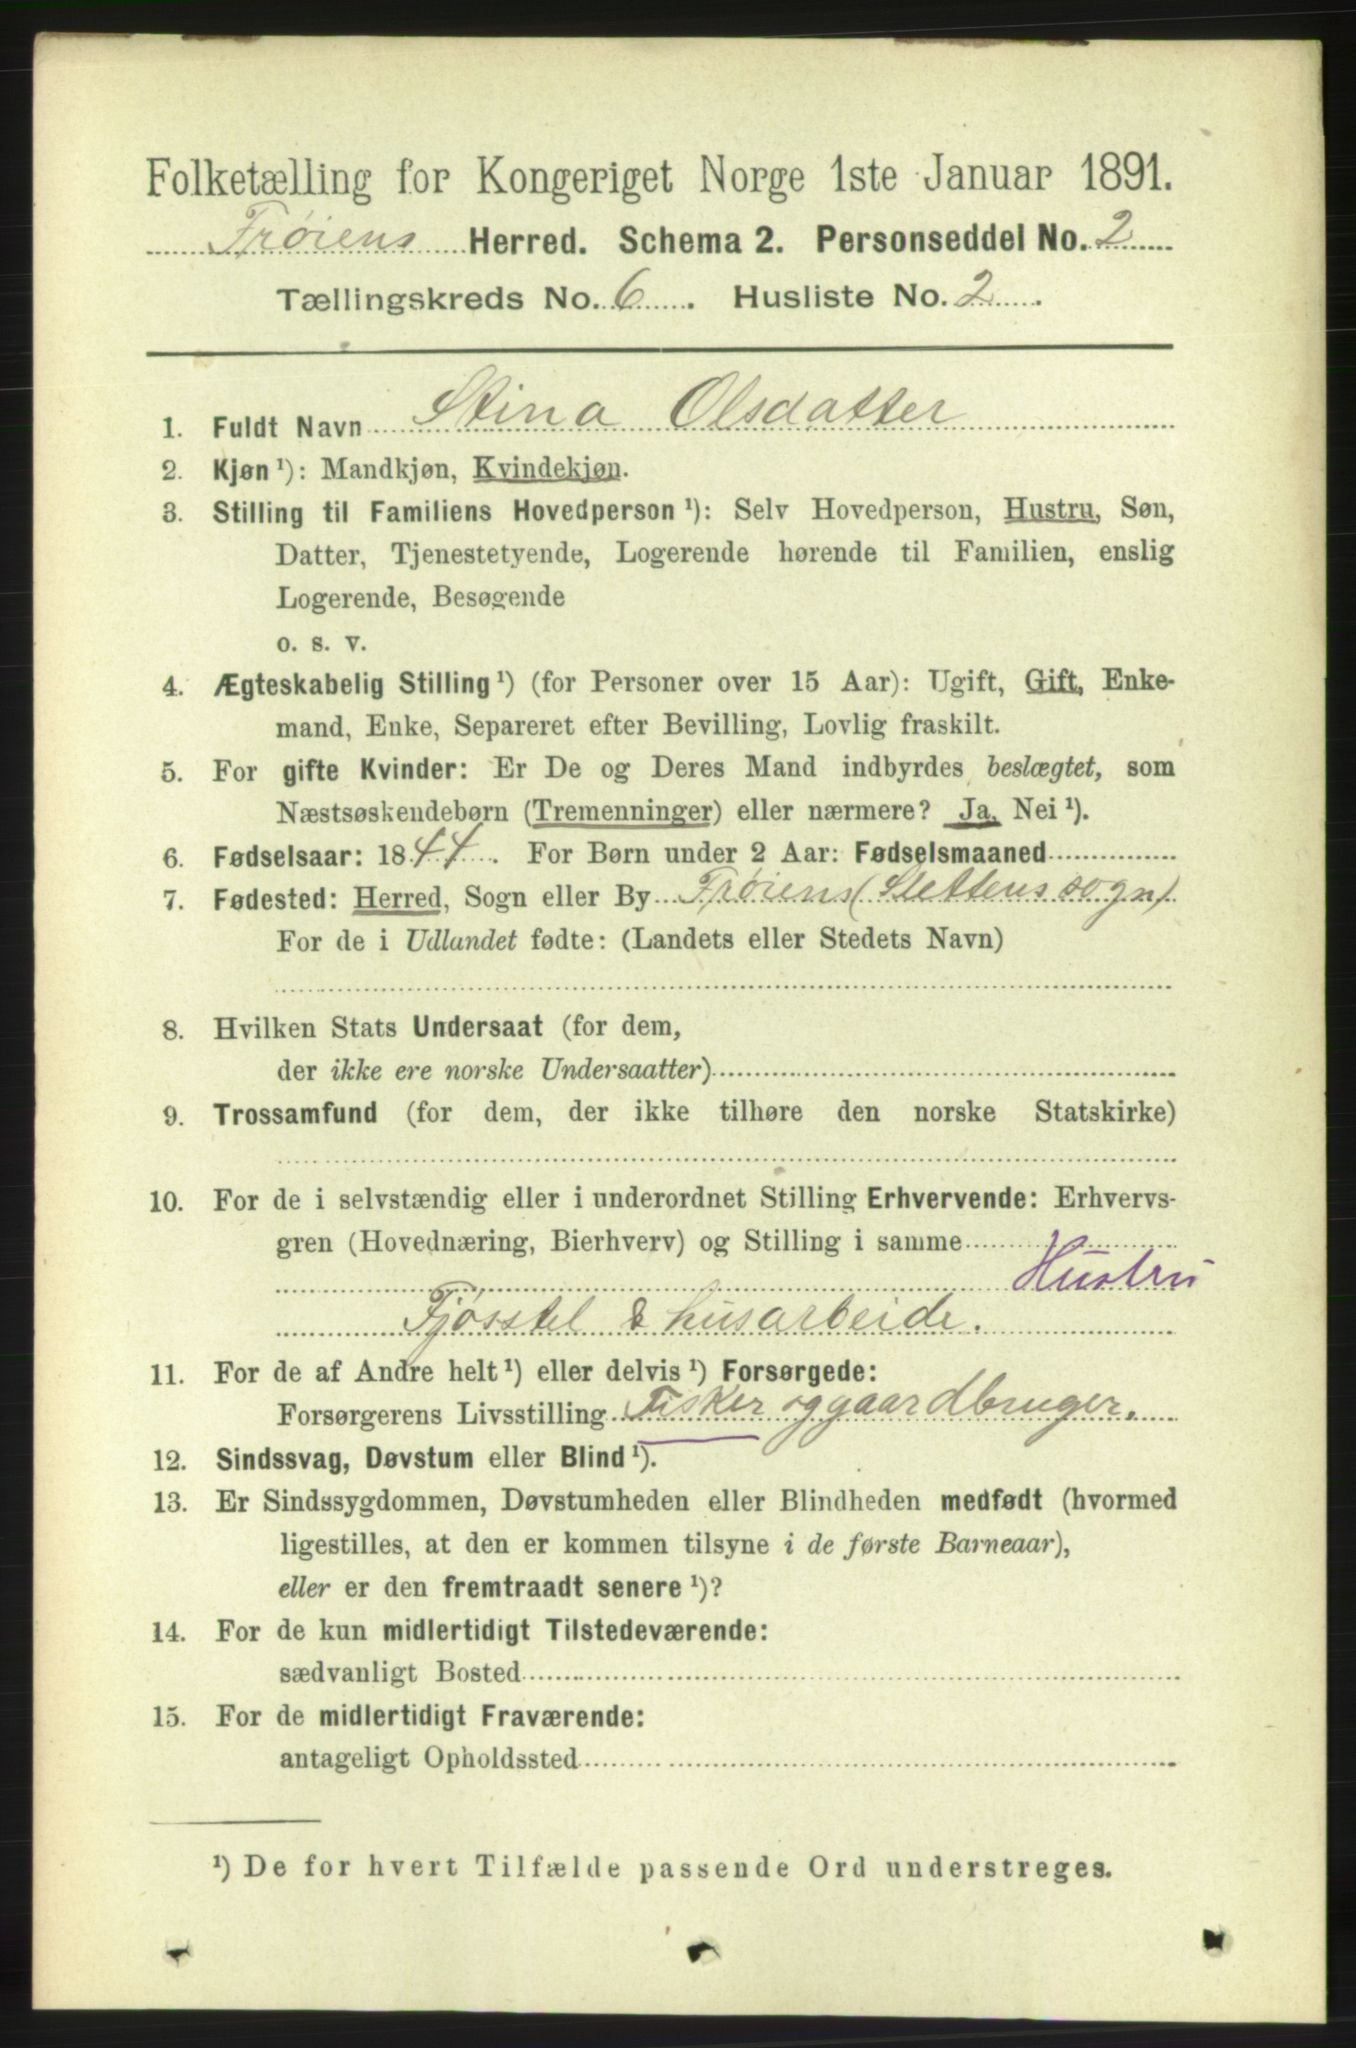 Folketælling for Kongeriget Norge 1ste Januar 1891.
Frøiens Herred. Schema 2. Personseddel No. 2
Tællingskreds No. 6. Husliste No. 2.
1. Fuldt Navn Stina Olsdatter
2. Kjøn ¹): Mandkjøn, Kvindekjøn.
3. Stilling til Familiens Hovedperson ¹): Selv Hovedperson, Hustru, Søn,
Datter, Tjenestetyende, Logerende hørende til Familien, enslig
Logerende, Besøgende
o. s. v.
4. Ægteskabelig Stilling ¹) (for Personer over 15 Aar): Ugift, Gift, Enke-
mand, Enke, Separeret efter Bevilling, Lovlig fraskilt.
5. For gifte Kvinder: Er De og Deres Mand indbyrdes beslægtet, som
Næstsøskendebørn (Tremenninger) eller nærmere? Ja, Nei ¹).
6. Fødselsaar: 1844. For Børn under 2 Aar: Fødselsmaaned
7. Fødested: Herred, Sogn eller By Frøiens (Slettens sogn)
For de i Udlandet fødte: (Landets eller Stedets Navn)
8. Hvilken Stats Undersaat (for dem,
der ikke ere norske Undersaatter)
9. Trossamfund (for dem, der ikke tilhøre den norske Statskirke)
10. For de i selvstændig eller i underordnet Stilling Erhvervende: Erhvervs-
gren (Hovednæring, Bierhverv) og Stilling i samme
Hustru
Fjøsstel & husarbeide.
11. For de af Andre helt ¹) eller delvis ¹) Forsørgede:
Forsørgerens Livsstilling Fisker og gaardbruger.
12. Sindssvag, Døvstum eller Blind ¹).
13. Er Sindssygdommen, Døvstumheden eller Blindheden medfødt (hvormed
ligestilles, at den er kommen tilsyne i de første Barneaar),
eller er den fremtraadt senere ¹)?
14. For de kun midlertidigt Tilstedeværende:
sædvanligt Bosted
15. For de midlertidigt Fraværende:
antageligt Opholdssted
¹) De for hvert Tilfælde passende Ord understreges.